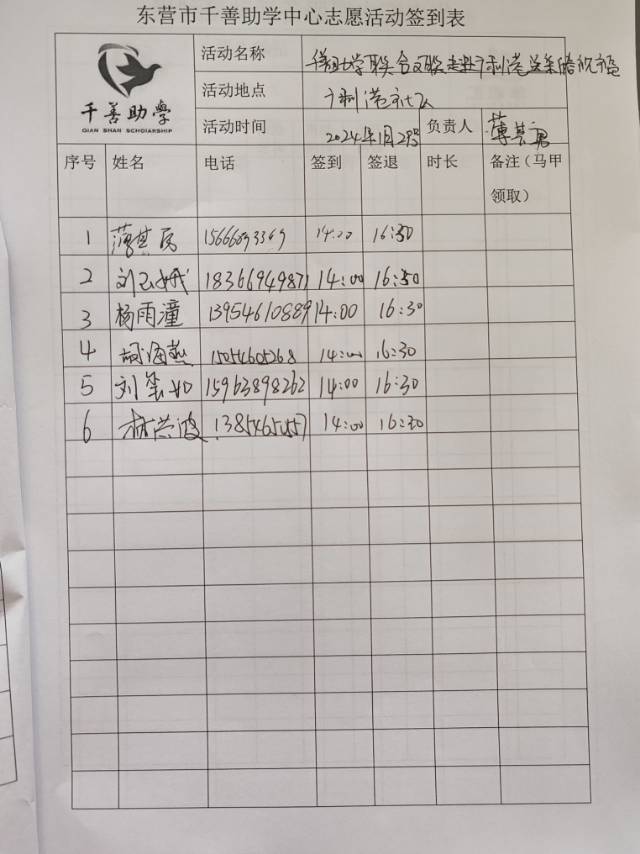 东营市千善助学中心志愿活动签到表
千善助學
QIAN SHAN SCHOLARSHIP
活动名称 千善助学联合文联走进广利港送春联祝福
活动地点 广利港社区
活动时间 2024年1月29号 负责人
序号 姓名 电话 签到 签退 时长 备注（马甲领取）
1 15666093369 14:00 16:30
2 刘玉娥 18366949871 14:00 16:30
3 杨雨潼 13954610889 14:00 16:30
4 胡海燕 15054605268 14:00 16:30
5 刘 15963898262 14:00 16:30
6 林兴波 14:00 16:30